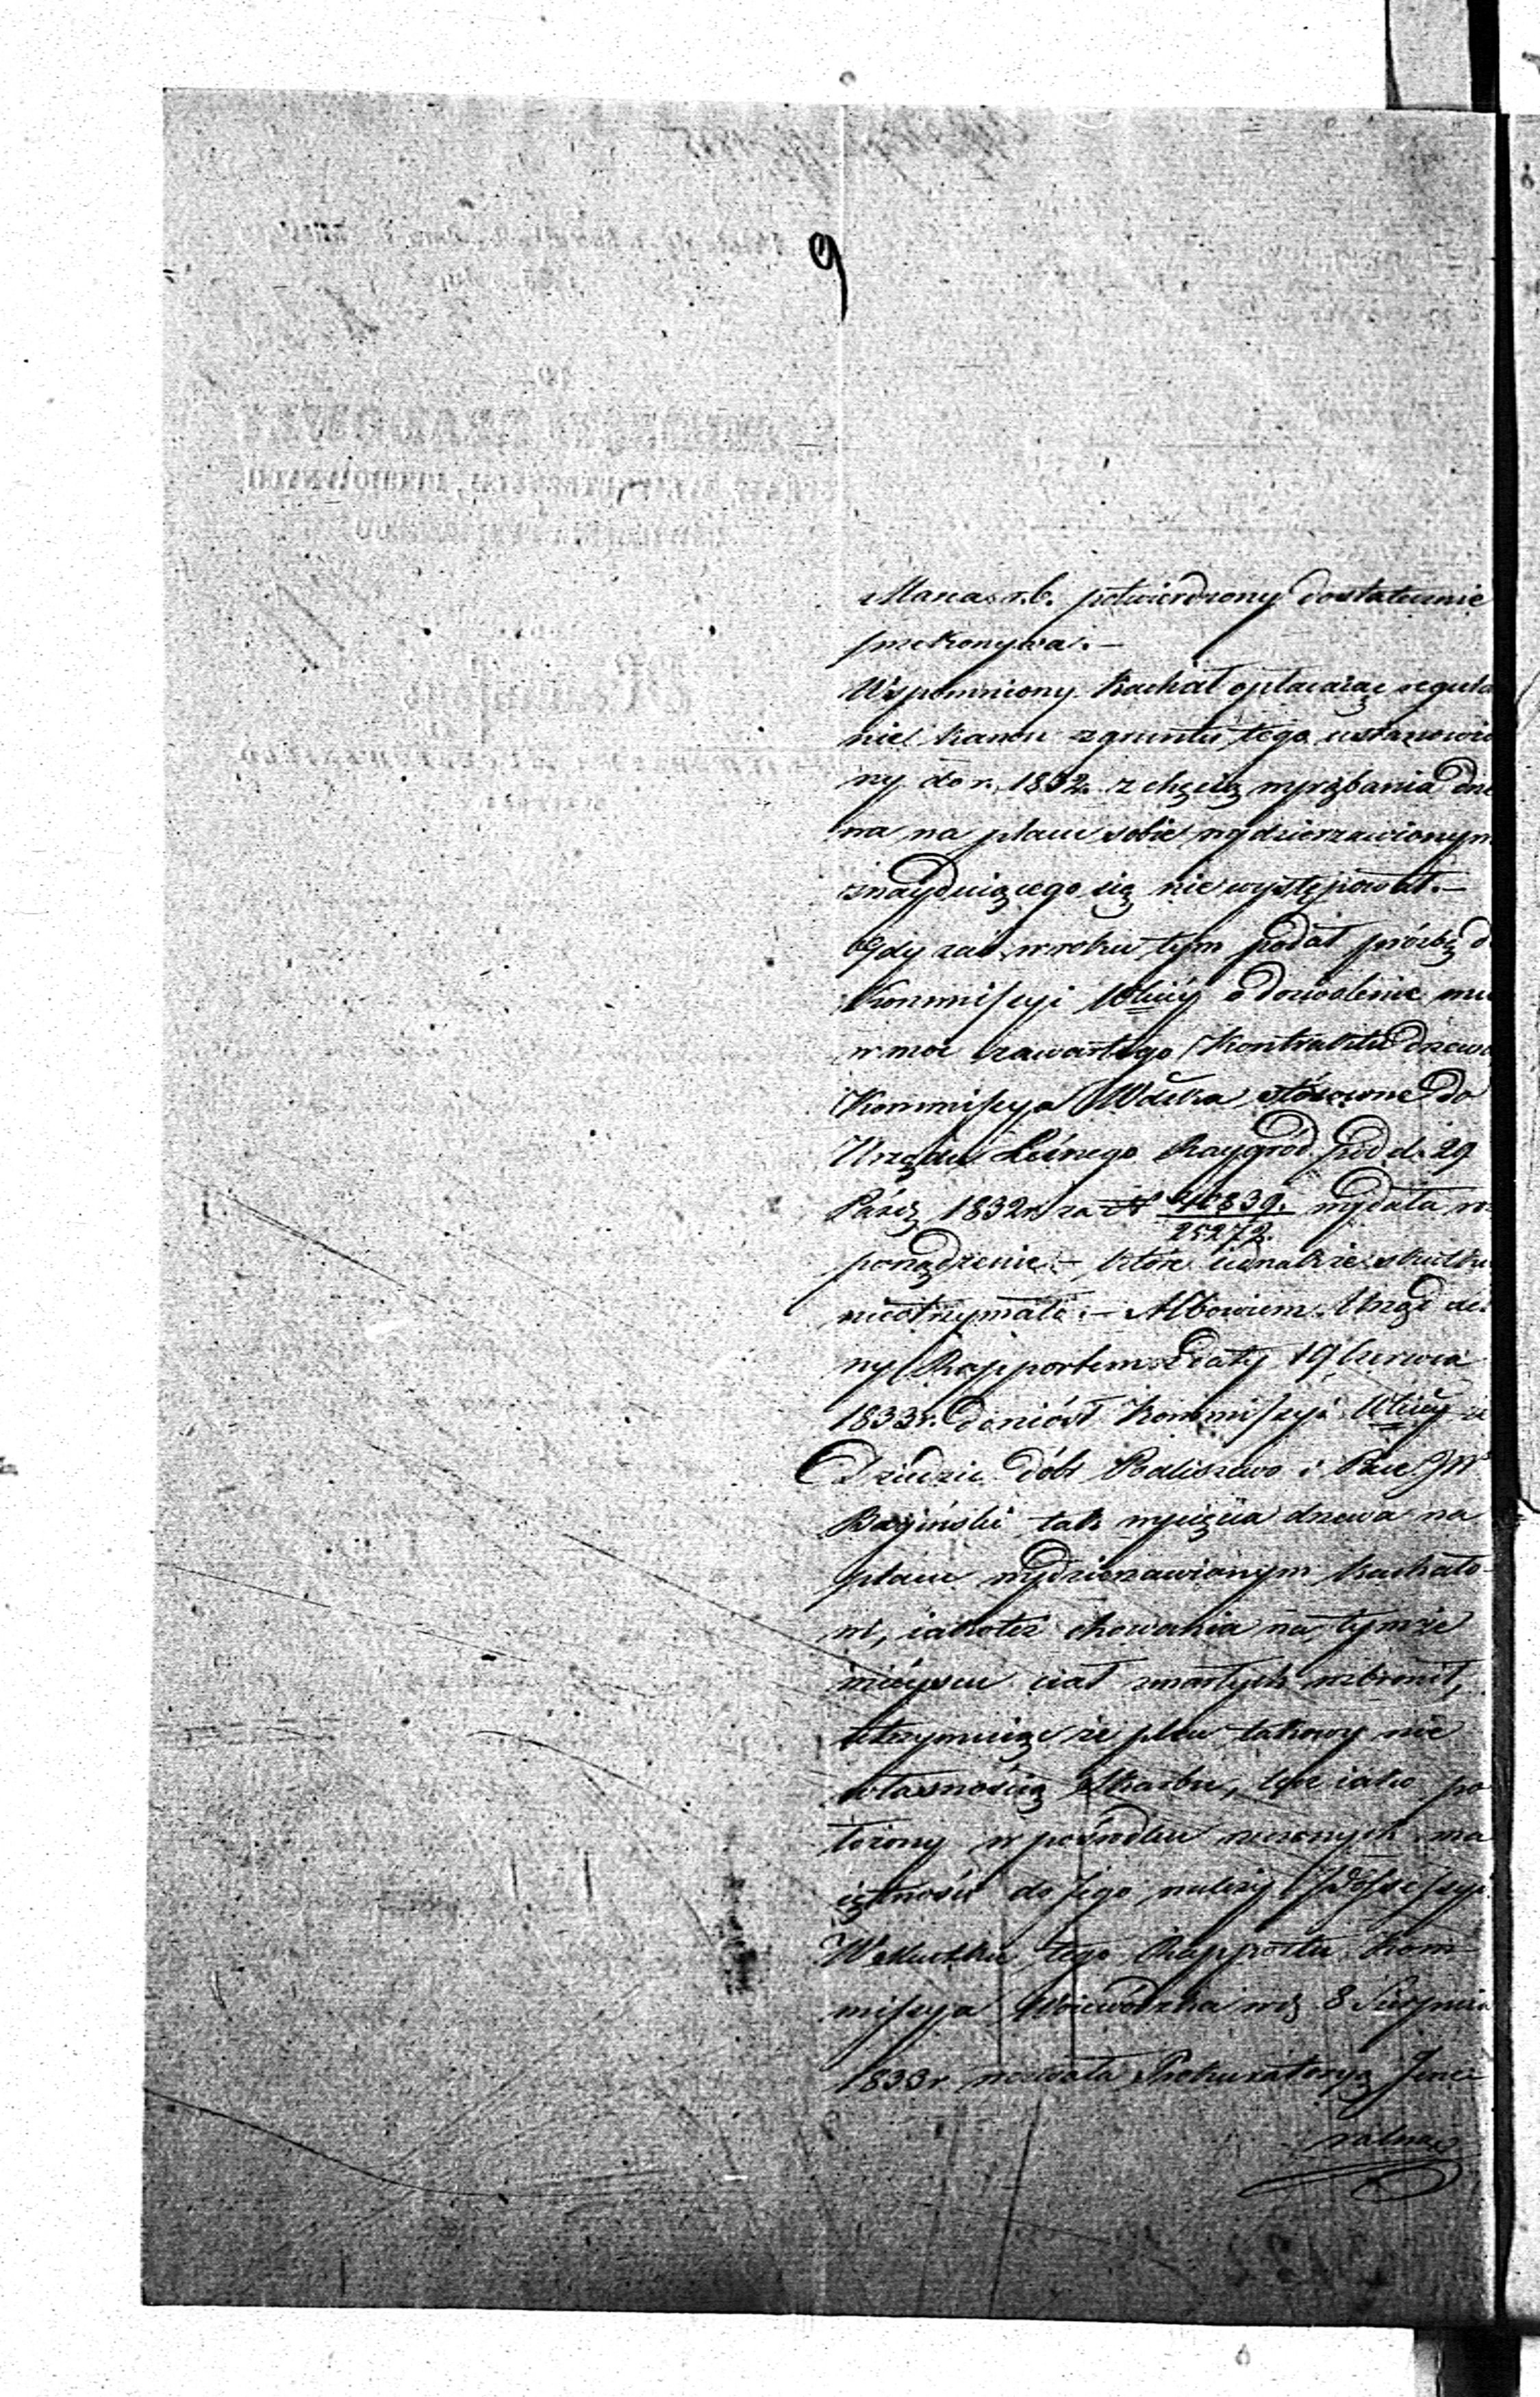 9
Marca r. b. potwierdzony dostatecznie
przekonywa. –
Wspomniony Kachał opłacaiąc regula
nie kanon z gruntu tego ustanowio
ny do r. 1832. z chęcią wyrąbania drze
wa na placu sobie wydzierzawionym
znayduiącego się nie występował. –
Gdy zaś w roku tym podał prózbę d
Kommissyi Wdzkiéy o dozwolenie mu
w moc zawartego Kontraktu drzewa
Kommissya Wdzka stósowne do
Urzędu Leśnego Raygród pod d. 29
Paźdz. 1832 r. za N 40839. wydała roz
25272.
porządzenie – które iednakże skutku
nieotrzymało. – Albowiem Urząd Leś
ny Rapportem z daty 19 Czerwca
1833 r. doniósł Kommissyi Wdzkiéy że
Dziedzic dóbr Podliszewo i Pace JW
Bagiński tak wycięcia drzewa na
placu wydzierzawionym Kachało
wi, iakoteż chowania na tymże
mieyscu ciał zmarłych wzbronił,
utrzymuiąc że plac takowy nie
własnością Skarbu, lecz iako po
łożony w pośrodku rzeczonych ma
iętności do Jego należy Possessyi
W skutku tego Rapportu Kom
missya Woiewódzka w d. 8 Sierpnia
1833 r. wezwała Prokuratoryą Jene
ralną